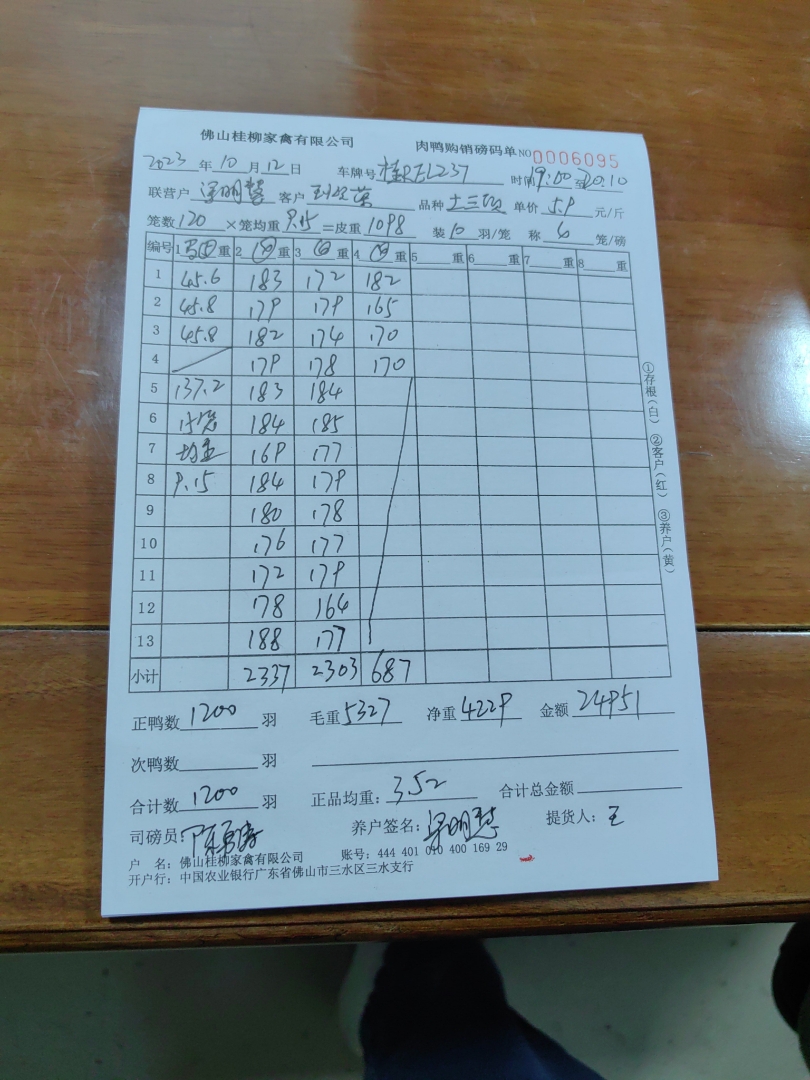 佛山桂柳家禽有限公司 肉鸭购销磅码单 NO 0006095
2023 年 10 月 12 日 车牌号 时间 19:00 至 20:10
联营户 梁明慧 客户 品种 土三 单价 5.9 元/斤
笼数 120 ×笼均重 9.15 =皮重 1098 装 10 羽/笼 称 笼/磅
编号 1 重 2 重 3 重 4 重 5 重 6 重 7 重 8 重
1 45.6 183 172 182
2 45.8 179 179 165
3 45.8 182 174 170
4 179 178 170
5 137.2 183 184
6 15笼 184 185
7 均重 169 177
8 9.15 184 179
9 180 178
10 176 177
11 172 179
12 178 164
13 188 177
小计 2337 2303 687
正鸭数 1200 羽 毛重 5327 净重 4229 金额 24951
次鸭数 羽
合计数 1200 羽 正品均重: 3.52 合计总金额
司磅员: 养户签名: 梁明慧 提货人: 王
户 名: 佛山桂柳家禽有限公司 账号: 444 401 010 400 169 29
开户行: 中国农业银行广东省佛山市三水区三水支行
①存根(白) ②客户(红) ③养户(黄)